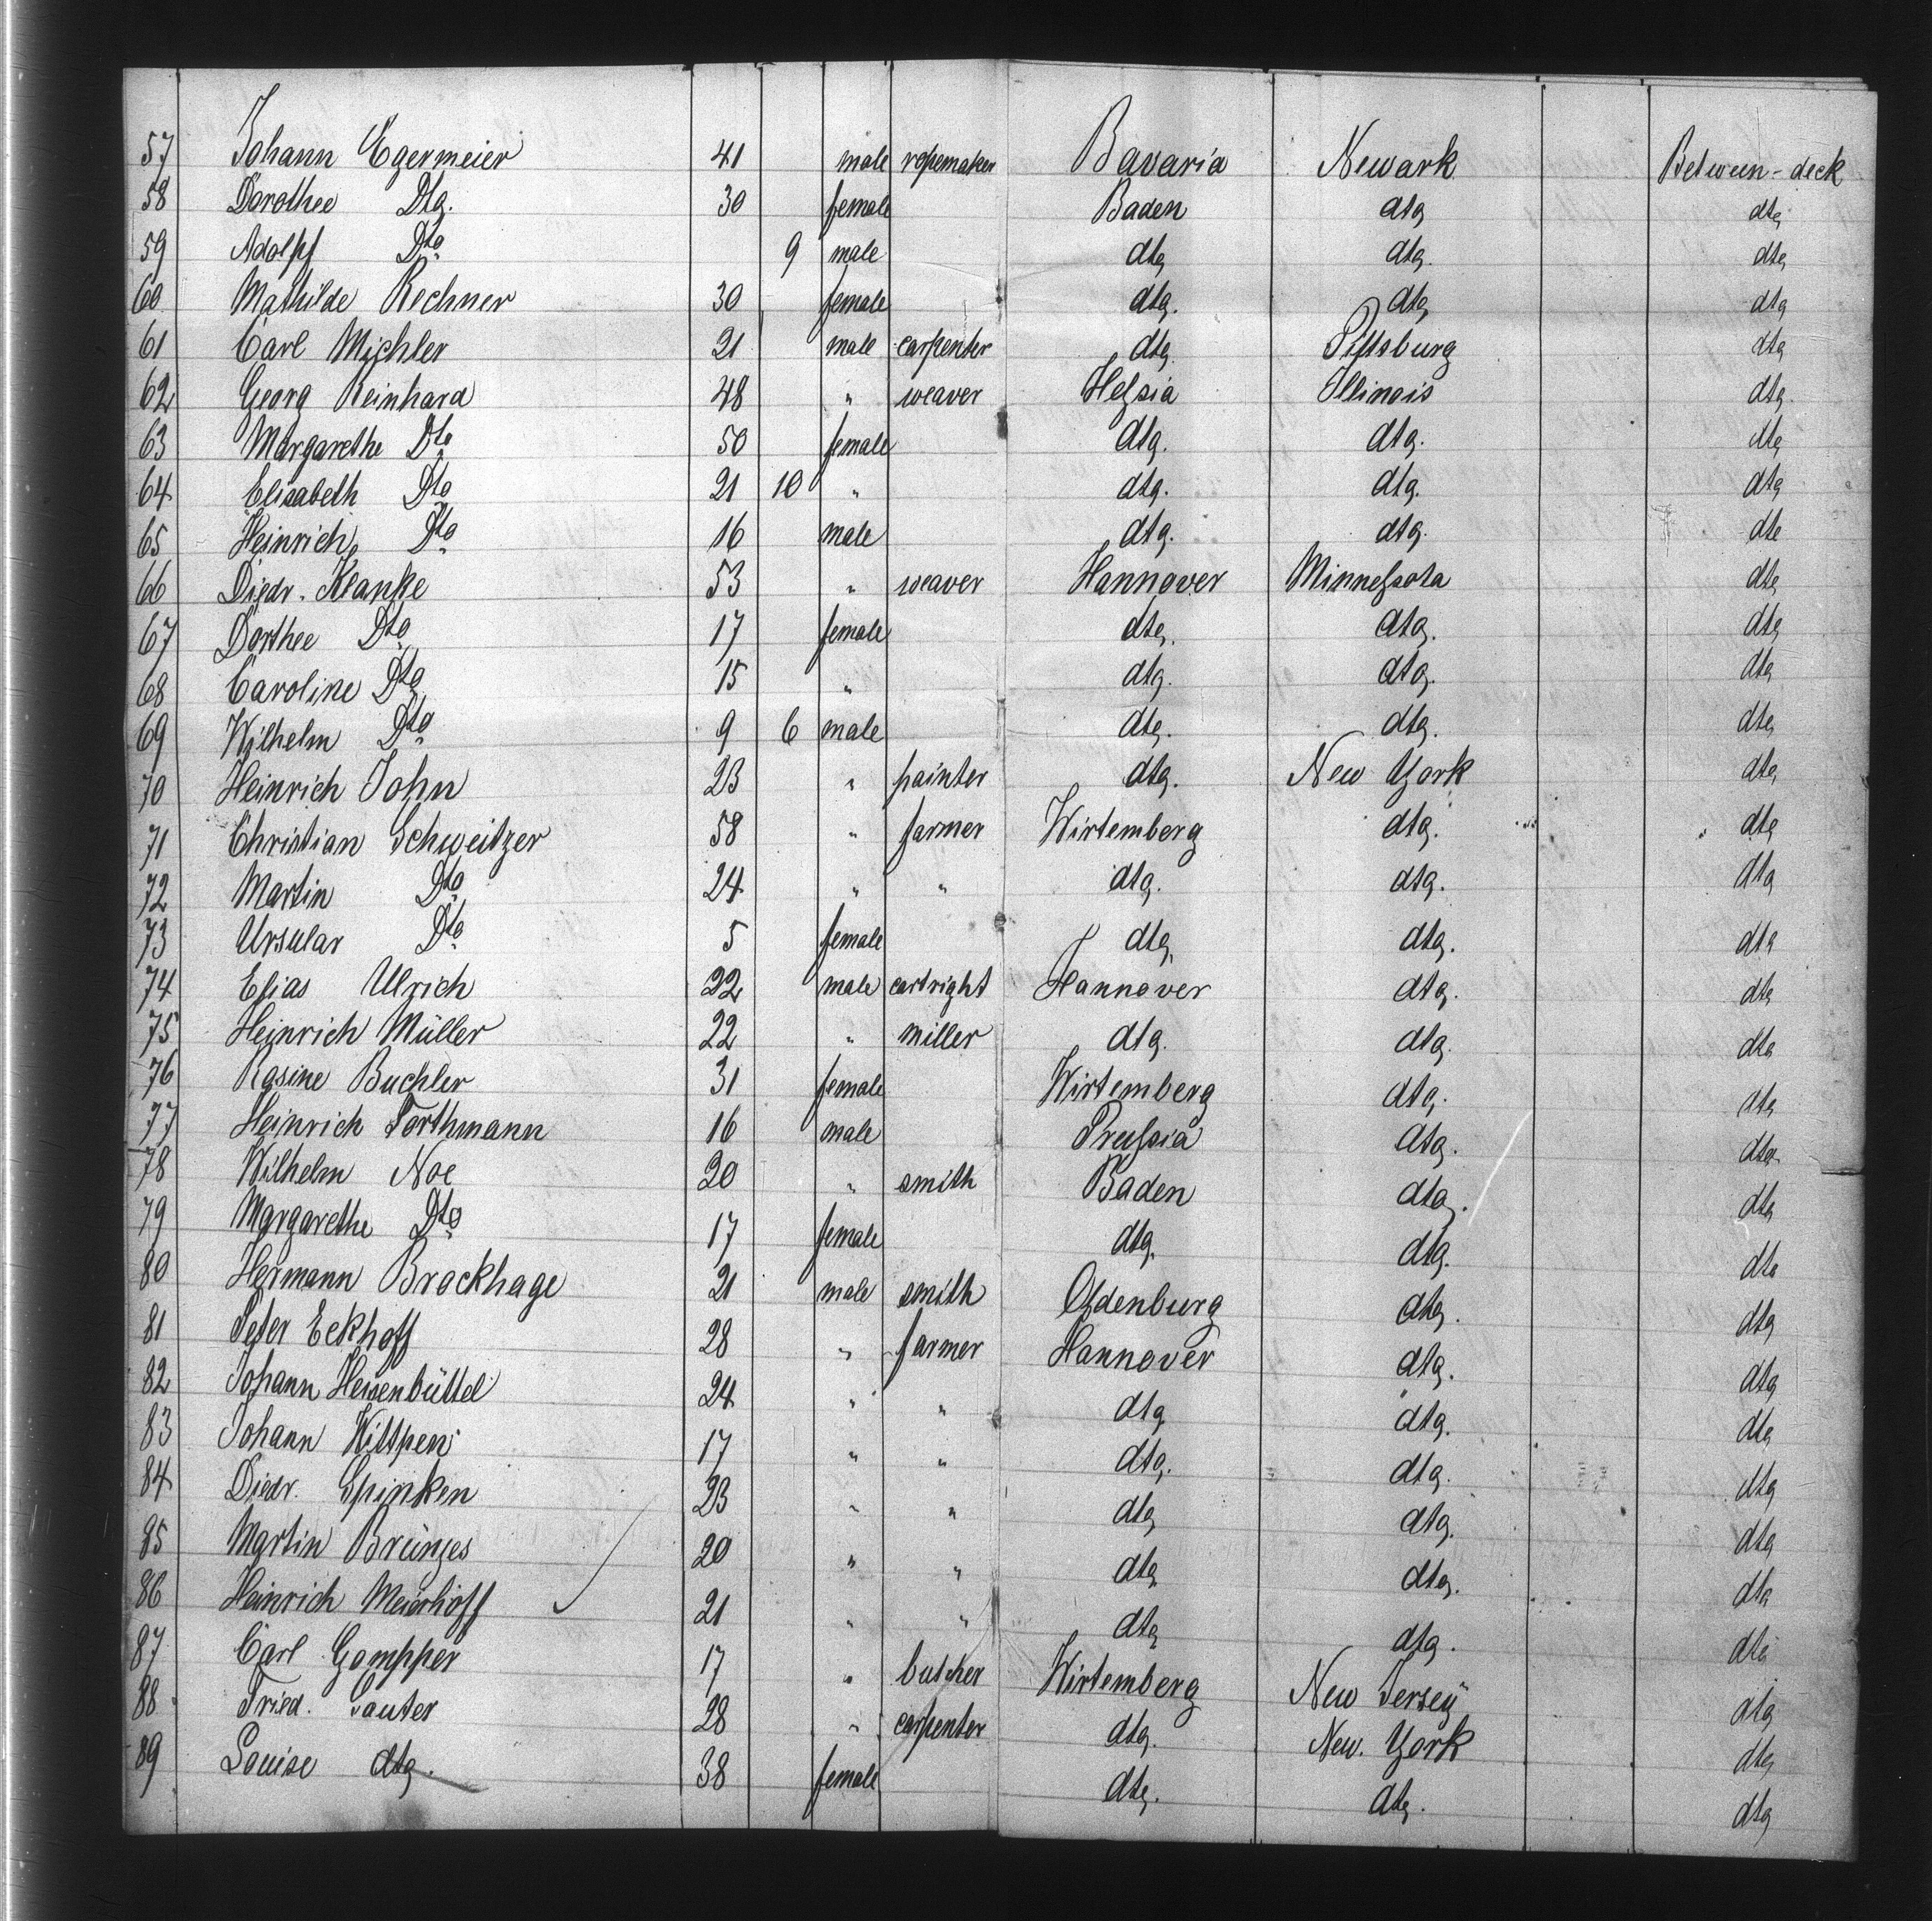 57 Johann Egermeier 41 male ropemaker Bavaria Newark Between-deck
58 Dorothee Dto. 30 female Baden dto dto
59 Adolpf Dto 9 male dto dto. dto
60 Mathilde Rechner 30 female dto. dto dto
61 Carl Michler 21 male carpenter dto. Pittsburg dto
62 Georg Reinhard 48 " weaver Heſsia Illinois dto.
63 Margarethe Dto 50 female dto. dto. dto
64 Elisabeth Dto 21 10 " dto. dto. dto
65 Heinrich Dto 16 male dto. dto. dto
66 Diedr. Klanke 53 " weaver Hannover Minneſsota dto
67 Dorthee Dto 17 female dto. dto. dto
68 Caroline Dto 15 " dto. dto. dto
69 Wilhelm Dto 9 6 male dto. dto. dto
70 Heinrich John 23 " painter dto. New York dto
71 Christian Schweitzer 58 " farmer Wirtemberg dto. dto
72 Martin Dto 24 " " dto. dto. dto
73 Ursular Dto 5 female dto. dto. dto
74 Elias Ulrich 22 male cartright Hannover dto. dto
75 Heinrich Müller 22 " miller dto. dto. dto
76 Rosine Buchler 31 female Wirtemberg dto. dto
77 Heinrich Torthmann 16 male Pruſsia dto. dto
78 Wilhelm Noe 20 " smith Baden dto. dto
79 Margarethe Dto 17 female dto. dto. dto
80 Hermann Brockhage 21 male smith Oldenburg dto. dto
81 Peter Eckhoff 28 " farmer Hannover dto. dto
82 Johann Heisenbüttel 24 " " dto. dto. dto
83 Johann Wittpen 17 " " dto. dto. dto
84 Diedr. Spinken 23 " " dto dto. dto
85 Martin Brünjes 20 " " dto dto. dto
86 Heinrich Meierhoff 21 " " dto dto. dto
87 Carl Gompper 17 " butcher Wirtemberg New Jersey dto
88 Fried. Sauter 28 " carpenter dto. New. York dto
89 Louise dto. 38 female dto. dto. dto